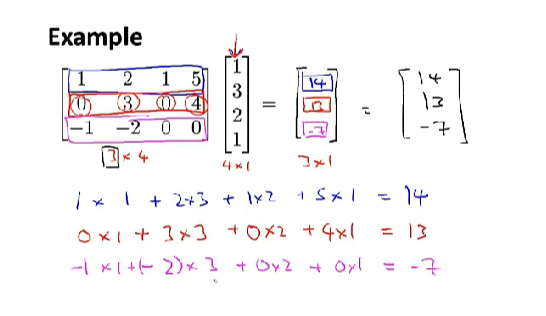 Example
1 2 1 5
0 3 0 4
-1 -2 0 0
1
3
2
1
=
14
13
-7
=
14
13
-7
3 × 4
4×1
3×1
1 × 1 + 2×3 + 1×2 + 5×1 = 14
0×1 + 3×3 + 0×2 + 4×1 = 13
-1 ×1+(-2)× 3 + 0×2 + 0×1 = -7